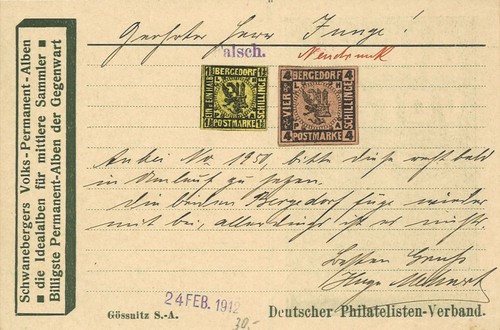 Schwanebergers Volks-Permanent-Alben
■ die Idealalben für mittlere Sammler ■
Billigste Permanent-Alben der Gegenwart
Geehrter Herr Junge!
alsch.
Neudruck
BERGEDORF
EIN EINHALB
SCHILLINGE
POSTMARKE
1½
1½
1½
1½
4 BERGEDORF 4
VIER
SCHILLINGE
4 POSTMARKE 4
Anbei No 1951, bitte diese recht bald
in Umlauf zu setzen.
Die beiden Bergedorf füge wieder
mit bei, allerdings ist es nichts.
Besten Gruss
Hugo
24 FEB. 1912
Gössnitz S.-A.
30.-
Deutscher Philatelisten-Verband.